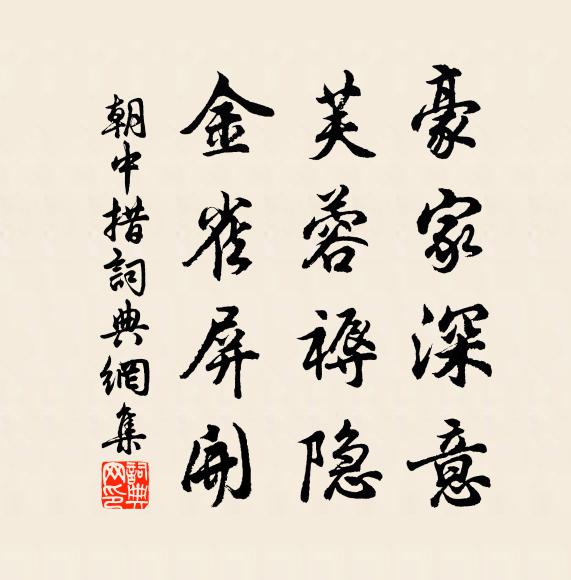 豪家深意
芙蓉褥隐
金雀屏開
朝中措詞典網集
詞典网印